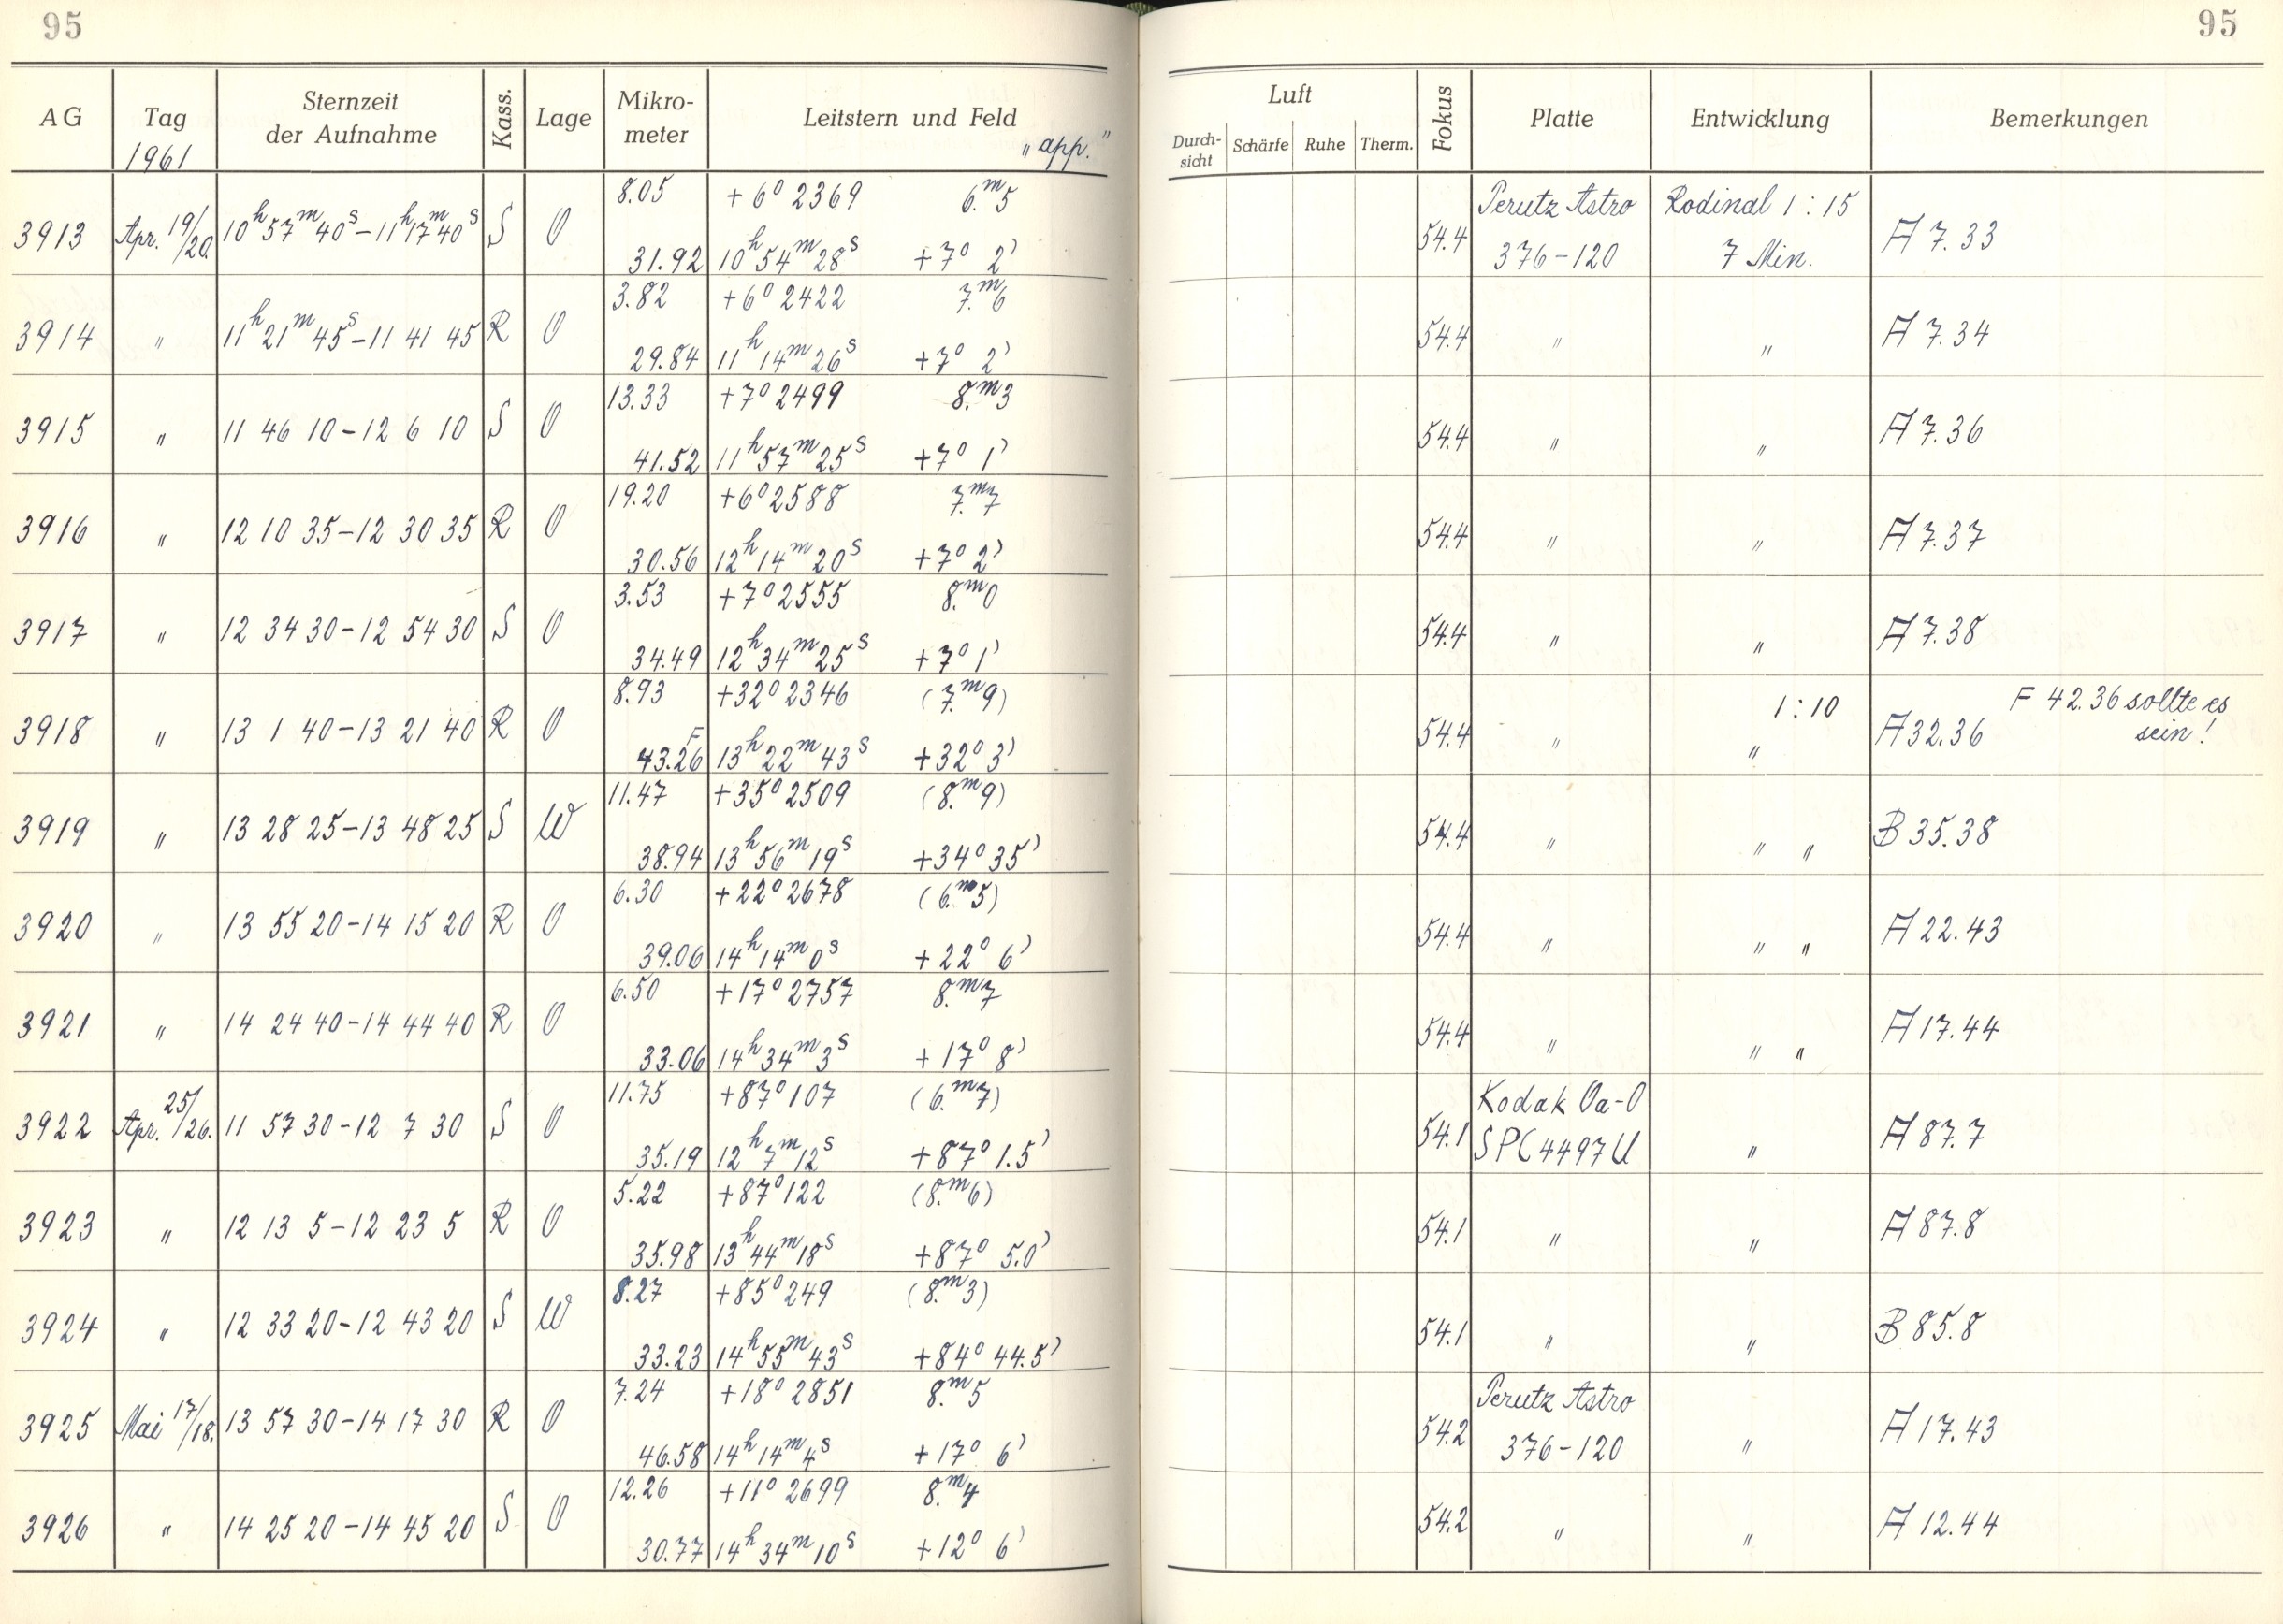 95
95
AG Tag Sternzeit der Aufnahme Kass. Lage Mikro- meter Leitstern und Feld Luft Fokus Platte Entwicklung Bemerkungen
1961 „app.“ Durch- sicht Schärfe Ruhe Therm.
8.05 +6° 2369 6.ᵐ5 Perutz Astro Rodinal 1:15
3913 Apr. 19/20. 10ʰ57ᵐ40ˢ–11ʰ17ᵐ40ˢ S O 54.4 A 7.33
31.92 10ʰ54ᵐ28ˢ +7° 2' 376–120 7 Min.
3.82 +6° 2422 7.ᵐ6
3914 " 11ʰ21ᵐ45ˢ–11 41 45 R O 54.4 " " A 7.34
29.84 11ʰ14ᵐ26ˢ +7° 2'
13.33 +7° 2499 8.ᵐ3
3915 " 11 46 10–12 6 10 S O 54.4 " " A 7.36
41.52 11ʰ57ᵐ25ˢ +7° 1'
19.20 +6° 2588 7.ᵐ7
3916 " 12 10 35–12 30 35 R O 54.4 " " A 7.37
30.56 12ʰ14ᵐ20ˢ +7° 2'
3.53 +7° 2555 8.ᵐ0
3917 " 12 34 30–12 54 30 S O 54.4 " " A 7.38
34.49 12ʰ34ᵐ25ˢ +7° 1'
8.93 +32° 2346 (7.ᵐ9) 1:10 F 42.36 sollte es
3918 " 13 1 40–13 21 40 R O F 54.4 " " A 32.36 sein!
43.26 13ʰ22ᵐ43ˢ +32° 3'
11.47 +35° 2509 (8.ᵐ9)
3919 " 13 28 25–13 48 25 S W 54.4 " " " B 35.38
38.94 13ʰ56ᵐ19ˢ +34° 35'
6.30 +22° 2678 (6.ᵐ5)
3920 " 13 55 20–14 15 20 R O 54.4 " " " A 22.43
39.06 14ʰ14ᵐ0ˢ +22° 6'
6.50 +17° 2757 8.ᵐ7
3921 " 14 24 40–14 44 40 R O 54.4 " " " A 17.44
33.06 14ʰ34ᵐ3ˢ +17° 8'
11.75 +87° 107 (6.ᵐ7) Kodak Oa-O
3922 Apr. 25/26. 11 57 30–12 7 30 S O 54.1 " A 87.7
35.19 12ʰ7ᵐ12ˢ +87° 1.5' SPC 4497U
5.22 +87° 122 (8.ᵐ6)
3923 " 12 13 5–12 23 5 R O 54.1 " " A 87.8
35.98 13ʰ44ᵐ18ˢ +87° 5.0'
8.27 +85° 249 (8.ᵐ3)
3924 " 12 33 20–12 43 20 S W 54.1 " " B 85.8
33.23 14ʰ55ᵐ43ˢ +84° 44.5'
7.24 +18° 2851 8.ᵐ5 Perutz Astro
3925 Mai 17/18. 13 57 30–14 17 30 R O 54.2 " A 17.43
46.58 14ʰ14ᵐ4ˢ +17° 6' 376–120
12.26 +11° 2699 8.ᵐ4
3926 " 14 25 20–14 45 20 S O 54.2 " " A 12.44
30.77 14ʰ34ᵐ10ˢ +12° 6'